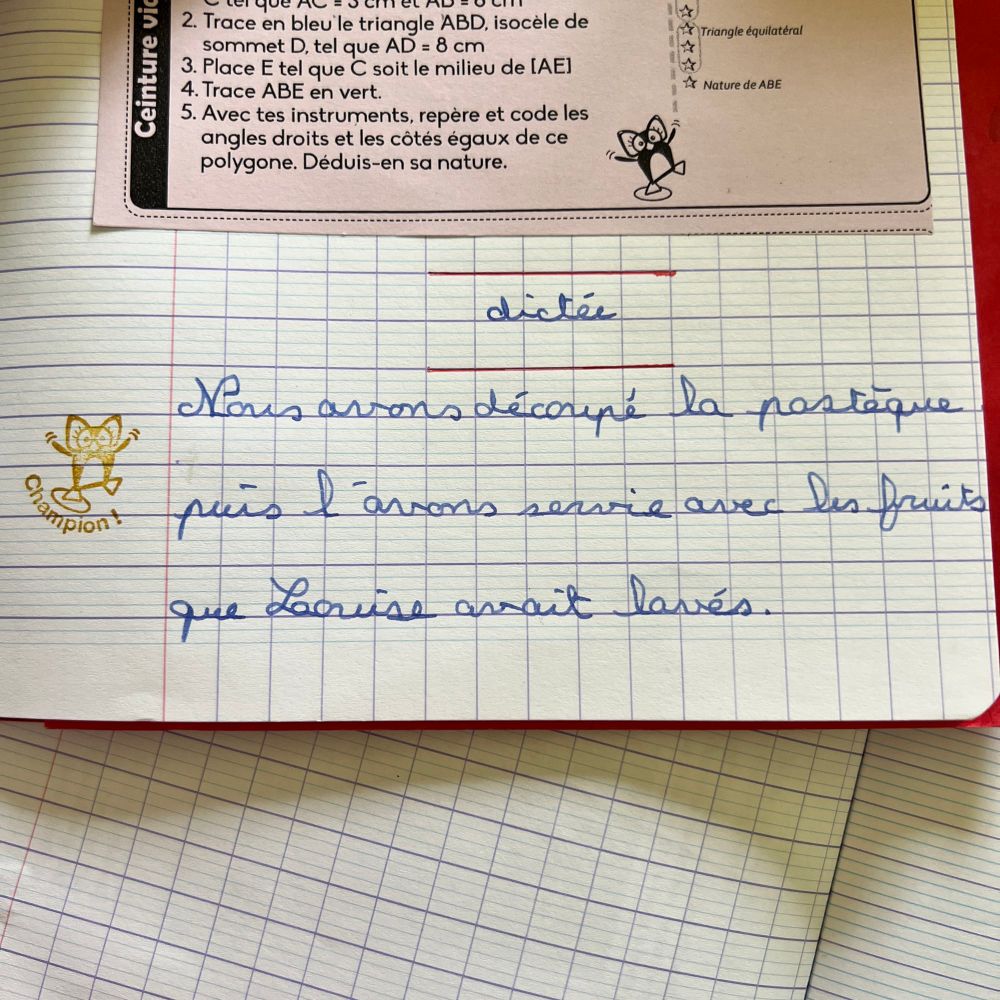 C tel que AC = 3 cm et AD = 8 cm
2. Trace en bleu le triangle ABD, isocèle de
sommet D, tel que AD = 8 cm
3. Place E tel que C soit le milieu de [AE]
4. Trace ABE en vert.
5. Avec tes instruments, repère et code les
angles droits et les côtés égaux de ce
polygone. Déduis-en sa nature.
Ceinture
Triangle équilatéral
Nature de ABE
dictée
Nous avons découpé la pastèque
puis l'avons servie avec les fruits
que Laouise avait lavés.
Champion !